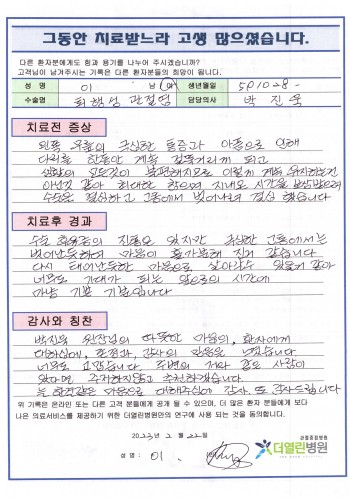 그동안 치료받느라 고생 많으셨습니다.
다른 환자분에게도 힘과 용기를 나누어 주시겠습니까?
고객님이 남겨주시는 기록은 다른 환자분들의 희망이 됩니다.
성 명 이 남/여 생년월일 591028-
수술명 퇴행성 관절염 담당의사 박진욱
치료전 증상
왼쪽 무릎의 극심한 통증과 아픔으로 인해
다리를 한동안 계속 절뚝거리게 되고
생활의 모든것이 불편해지므로 이렇게 계속 유지하는건
아닌것 같아 최대한 참으며 지내온 시간을
수술을 결심하고 고통에서 벗어나려 결심 했습니다
치료후 경과
수술 후 통증의 있지만 극심한 고통에서는
벗어난듯하여 마음이 홀가분해 지게 같습니다
다시 태어난듯한 마음으로 살아갈수 있을거 같아
너무도 기대가 되는 앞으로의 시간에
마냥 기쁜 기분입니다
감사와 칭찬
박진욱 원장님의 따뜻한 마음의, 환자에게
대하심에, 친절과, 감사의 마음을
너무도 고맙습니다. 주변의 저와 같은 사람이
있다면 주저하지않고 추천하겠습니다.
늘 한결같은 마음으로 대해주심에 감사, 또 감사드립니다
위 기록은 온라인 또는 다른 고객 분들에게 공개 될 수 있으며, 더 많은 환자 분들에게 보다
나은 의료서비스를 제공하기 위한 더열린병원만의 연구에 사용 되는 것을 동의합니다.
2023년 2월 22일
성 명 : 이.
관절중점병원
더열린병원